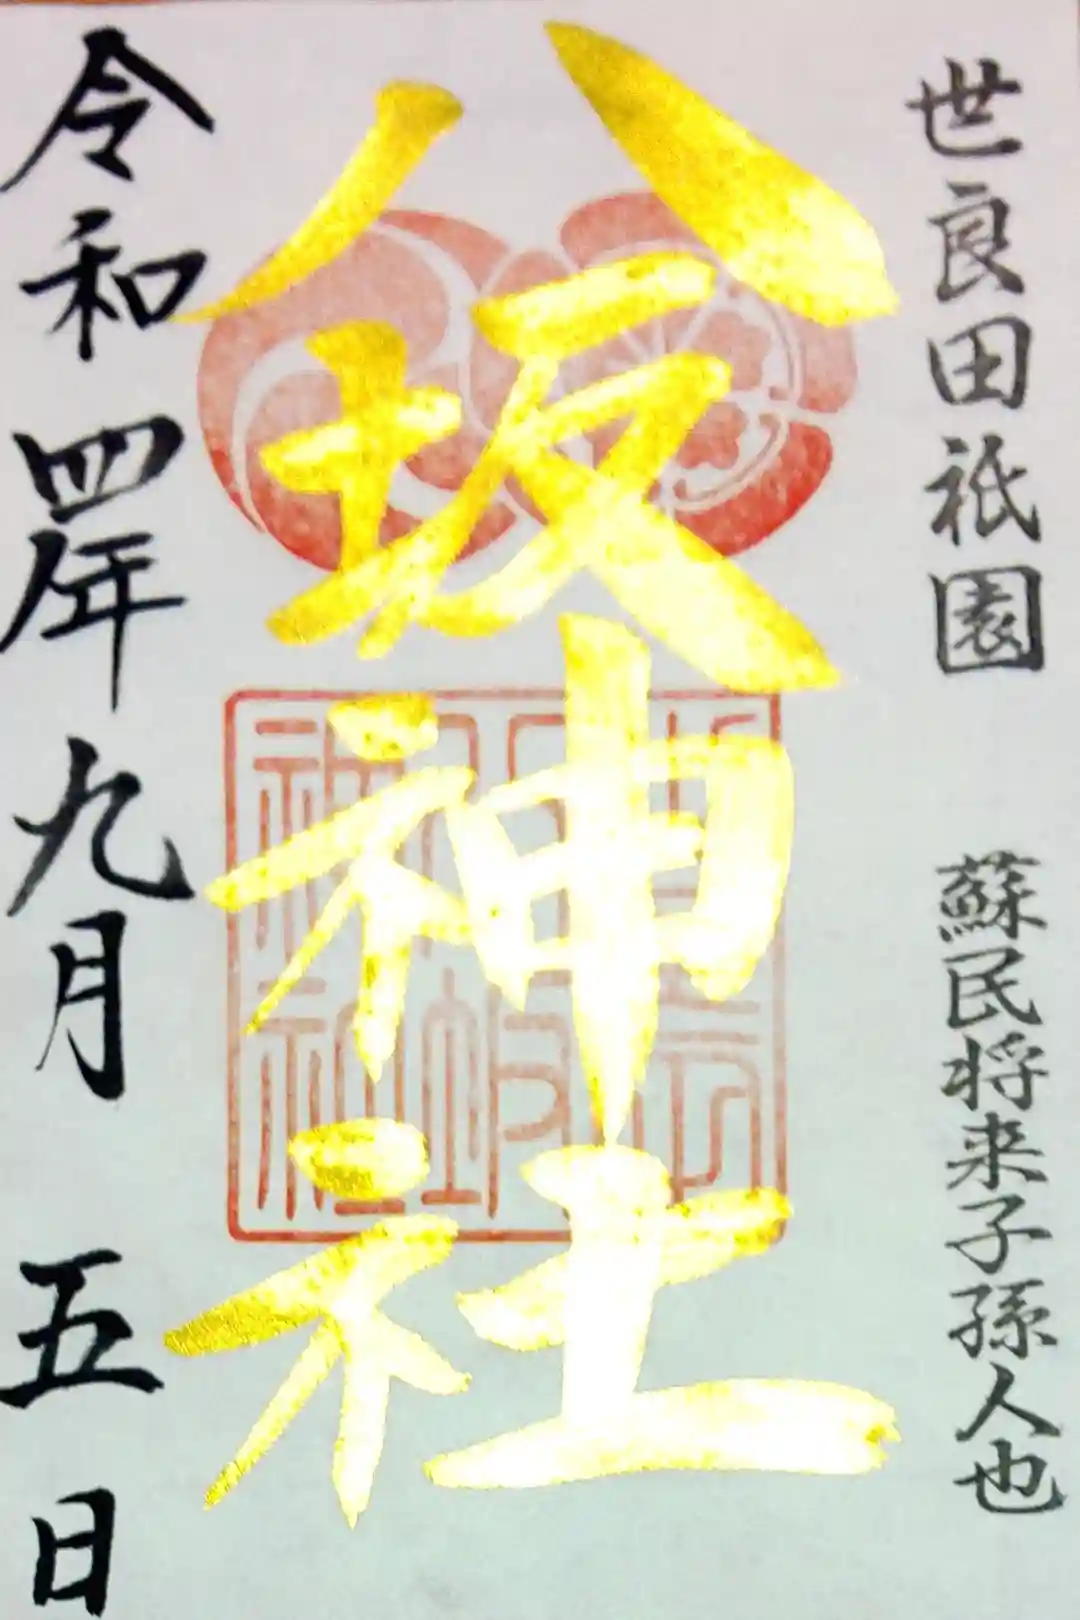 世良田祇園　蘇民将来子孫人也
八坂神社
令和四年九月五日